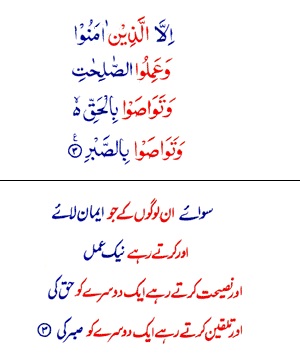 اِلَّا الَّذِيْنَ اٰمَنُوْا
وَعَمِلُوا الصّٰلِحٰتِ
وَتَوَاصَوْا بِالْحَقِّ ۙ
وَتَوَاصَوْا بِالصَّبْرِ ﴿۳﴾ ع
سوائے ان لوگوں کے جو ایمان لائے
اور کرتے رہے نیک عمل
اور نصیحت کرتے رہے ایک دوسرے کو حق کی
اور تلقین کرتے رہے ایک دوسرے کو صبر کی ﴿۳﴾